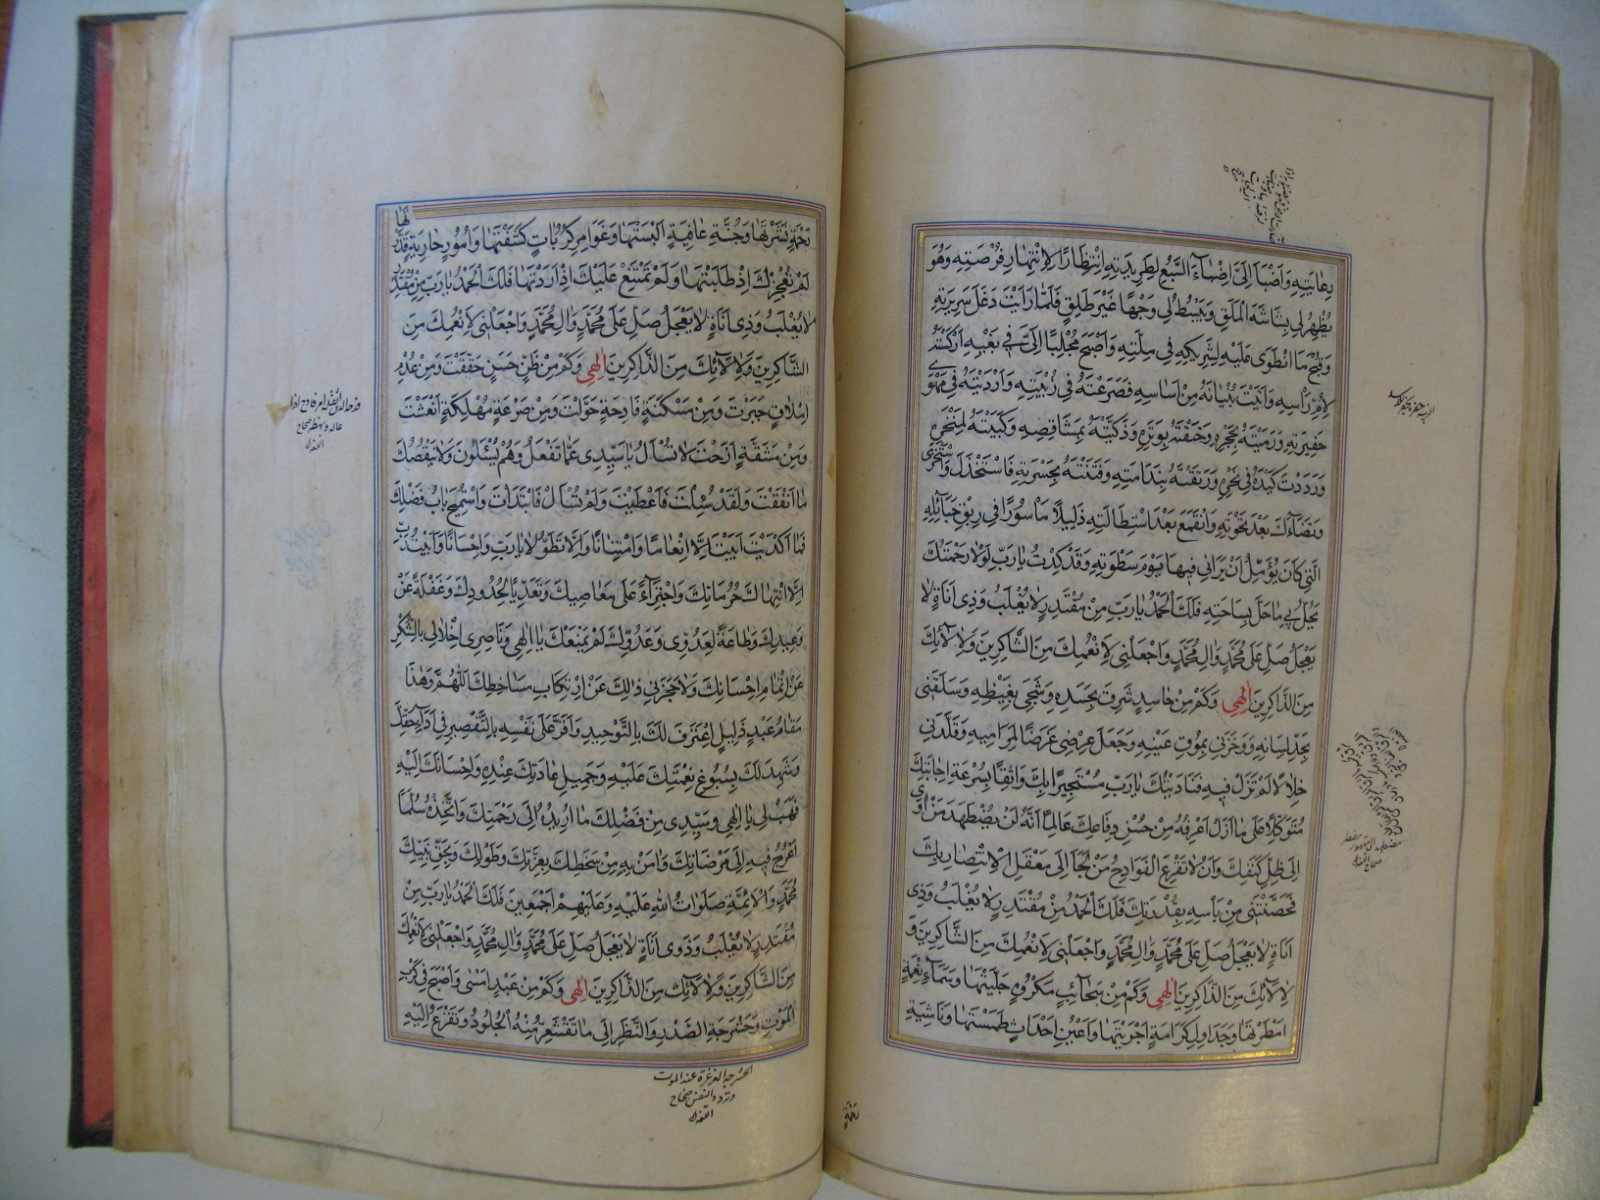 رِعَايَتِهِ وَاَضْبَاَ اِلَىَّ اِضْبَاۤءَ السَّبُعِ لِطَرِيدَتِهِ اِنْتِظَارًا لِاِنْتِهَازِ فُرْصَتِهِ وَهُوَ
يُظْهِرُ لِى بَشَاشَةَ الْمَلَقِ وَيَبْسُطُ لِى وَجْهًا غَيْرَ طَلِقٍ فَلَمَّا رَاَيْتَ دَغَلَ سَرِيرَتِهِ
وَقُبْحَ مَا انْطَوَى عَلَيْهِ لِشَرِيكِهِ فِى مِلَّتِهِ وَاَصْبَحَ مُجْلِبًا اِلَىَّ فِى بَغْيِهِ اَرْكَسْتَهُ
لِاُمِّ رَاْسِهِ وَاَتَيْتَ بُنْيَانَهُ مِنْ اَسَاسِهِ فَصَرَعْتَهُ فِى زُبْيَتِهِ وَاَرْدَيْتَهُ فِى مَهْوٰى
حَفِيرَتِهِ وَرَمَيْتَهُ بِحَجَرِهِ وَخَنَقْتَهُ بِوَتَرِهِ وَذَكَّيْتَهُ بِمَشَاقِصِهِ وَكَبَبْتَهُ لِمَنْخَرِهِ
وَرَدَدْتَ كَيْدَهُ فِى نَحْرِهِ وَرَبَقْتَهُ بِنَدَامَتِهِ وَفَتَنْتَهُ بِحَسْرَتِهِ فَاسْتَخْذَلَ
وَتَضَاۤءَلَ بَعْدَ نَخْوَتِهِ وَانْقَمَعَ بَعْدَ اسْتِطَالَتِهِ ذَلِيلًا مَاْسُورًا فِى رِبْقِ حَبَاۤئِلِهِ
الَّتِى كَانَ يُؤَمِّلُ اَنْ يَرَانِى فِيهَا يَوْمَ سَطْوَتِهِ وَقَدْ كِدْتُ يَا رَبِّ لَوْلَا رَحْمَتُكَ
يَحُلُّ بِى مَا حَلَّ بِسَاحَتِهِ فَلَكَ الْحَمْدُ يَا رَبِّ مِنْ مُقْتَدِرٍ لَا يُغْلَبُ وَذِى اَنَاةٍ لَا
يَعْجَلُ صَلِّ عَلَى مُحَمَّدٍ وَالِ مُحَمَّدٍ وَاجْعَلْنِى لِاَنْعُمِكَ مِنَ الشَّاكِرِينَ وَلِاٰلَاۤئِكَ
مِنَ الذَّاكِرِينَ اِلٰهِى وَكَمْ مِنْ حَاسِدٍ شَرِقَ بِحَسَدِهِ وَشَجِىَ بِغَيْظِهِ وَسَلَقَنِى
بِحَدِّ لِسَانِهِ وَوَخَزَنِى بِمُوقِ عَيْنِهِ وَجَعَلَ عِرْضِى غَرَضًا لِمَرَامِيهِ وَقَلَّدَنِى
خِلَالًا لَمْ تَزَلْ فِيهِ فَنَادَيْتُكَ يَا رَبِّ مُسْتَجِيرًا بِكَ وَاثِقًا بِسُرْعَةِ اِجَابَتِكَ
مُتَوَكِّلًا عَلَى مَا لَمْ اَزَلْ اَعْرِفُهُ مِنْ حُسْنِ دِفَاعِكَ عَالِمًا اَنَّهُ لَنْ يُضْطَهَدَ مَنْ اٰوٰى
اِلَى ظِلِّ كَنَفِكَ وَاَنْ لَا تَقْرَعَ الْفَوَادِحُ مَنْ لَجَاَ اِلَى مَعْقِلِ الْاِنْتِصَارِ بِكَ
فَحَصَّنْتَنِى مِنْ بَاْسِهِ بِقُدْرَتِكَ فَلَكَ الْحَمْدُ مِنْ مُقْتَدِرٍ لَا يُغْلَبُ وَذِى
اَنَاةٍ لَا يَعْجَلُ صَلِّ عَلَى مُحَمَّدٍ وَالِ مُحَمَّدٍ وَاجْعَلْنِى لِاَنْعُمِكَ مِنَ الشَّاكِرِينَ وَ
لِاٰلَاۤئِكَ مِنَ الذَّاكِرِينَ اِلٰهِى وَكَمْ مِنْ سَحَاۤئِبِ مَكْرُوهٍ جَلَّيْتَهَا وَسَمَاۤءِ نِعْمَةٍ
اَمْطَرْتَهَا وَجَدَاوِلِ كَرَامَةٍ اَجْرَيْتَهَا وَاَعْيُنِ اَحْدَاثٍ طَمَسْتَهَا وَنَاشِيَةِ
رَحْمَةٍ نَشَرْتَهَا وَجُنَّةِ عَافِيَةٍ اَلْبَسْتَهَا وَغَوَامِرِ كُرُبَاتٍ كَشَفْتَهَا وَاُمُورٍ جَارِيَةٍ قَدَّرْتَهَا
لَمْ تُعْجِزْكَ اِذْ طَلَبْتَهَا وَلَمْ تَمْتَنِعْ عَلَيْكَ اِذْ اَرَدْتَهَا فَلَكَ الْحَمْدُ يَا رَبِّ مِنْ مُقْتَدِرٍ
لَا يُغْلَبُ وَذِى اَنَاةٍ لَا يَعْجَلُ صَلِّ عَلَى مُحَمَّدٍ وَالِ مُحَمَّدٍ وَاجْعَلْنِى لِاَنْعُمِكَ مِنَ
الشَّاكِرِينَ وَلِاٰلَاۤئِكَ مِنَ الذَّاكِرِينَ اِلٰهِى وَكَمْ مِنْ ظَنٍّ حَسَنٍ حَقَّقْتَ وَمِنْ عُدْمِ
اِمْلَاقٍ جَبَرْتَ وَمِنْ مَسْكَنَةٍ فَادِحَةٍ حَوَّلْتَ وَمِنْ صَرْعَةٍ مُهْلِكَةٍ اَنْعَشْتَ
وَمِنْ مَشَقَّةٍ اَزَحْتَ لَا تُسْاَلُ يَا سَيِّدِى عَمَّا تَفْعَلُ وَهُمْ يُسْئَلُونَ وَلَا يَنْقُصُكَ
مَا اَنْفَقْتَ وَلَقَدْ سُئِلْتَ فَاَعْطَيْتَ وَلَمْ تُسْاَلْ فَابْتَدَاْتَ وَاسْتُمِيحَ بَابُ فَضْلِكَ
فَمَا اَكْدَيْتَ اَبَيْتَ اِلَّا اِنْعَامًا وَامْتِنَانًا وَاِلَّا تَطَوُّلًا يَا رَبِّ وَاِحْسَانًا وَاَبَيْتُ يَا رَبِّ
اِلَّا انْتِهَاكًا لِحُرُمَاتِكَ وَاجْتِرَاۤءً عَلَى مَعَاصِيكَ وَتَعَدِّيًا لِحُدُودِكَ وَغَفْلَةً عَنْ
وَعِيدِكَ وَطَاعَةً لِعَدُوِّى وَعَدُوِّكَ لَمْ يَمْنَعْكَ يَا اِلٰهِى وَنَاصِرِى اِخْلَالِى بِالشُّكْرِ
عَنْ اِتْمَامِ اِحْسَانِكَ وَلَا حَجَزَنِى ذٰلِكَ عَنِ ارْتِكَابِ مَسَاخِطِكَ اَللّٰهُمَّ وَهٰذَا
مَقَامُ عَبْدٍ ذَلِيلٍ اِعْتَرَفَ لَكَ بِالتَّوْحِيدِ وَاَقَرَّ عَلَى نَفْسِهِ بِالتَّقْصِيرِ فِى اَدَاۤءِ حَقِّكَ
وَشَهِدَ لَكَ بِسُبُوغِ نِعْمَتِكَ عَلَيْهِ وَجَمِيلِ عَادَتِكَ عِنْدَهُ وَاِحْسَانِكَ اِلَيْهِ
فَهَبْ لِى يَا اِلٰهِى وَسَيِّدِى مِنْ فَضْلِكَ مَا اُرِيدُهُ اِلَى رَحْمَتِكَ وَاَتَّخِذُهُ سُلَّمًا
اَعْرُجُ فِيهِ اِلَى مَرْضَاتِكَ وَاٰمَنُ بِهِ مِنْ سَخَطِكَ بِعِزَّتِكَ وَطَوْلِكَ وَبِحَقِّ نَبِيِّكَ
مُحَمَّدٍ وَالْاَئِمَّةِ صَلَوَاتُ اللّٰهِ عَلَيْهِ وَعَلَيْهِمْ اَجْمَعِينَ فَلَكَ الْحَمْدُ يَا رَبِّ مِنْ
مُقْتَدِرٍ لَا يُغْلَبُ وَذِى اَنَاةٍ لَا يَعْجَلُ صَلِّ عَلَى مُحَمَّدٍ وَالِ مُحَمَّدٍ وَاجْعَلْنِى لِاَنْعُمِكَ
مِنَ الشَّاكِرِينَ وَلِاٰلَاۤئِكَ مِنَ الذَّاكِرِينَ اِلٰهِى وَكَمْ مِنْ عَبْدٍ اَمْسٰى وَاَصْبَحَ فِى كَرْبِ
الْمَوْتِ وَحَشْرَجَةِ الصَّدْرِ وَالنَّظَرِ اِلَى مَا تَقْشَعِرُّ مِنْهُ الْجُلُودُ وَتَفْزَعُ اِلَيْهِ
الحشرجة الغرغرة عند الموت
وتردد النفس صحاح
اللغة